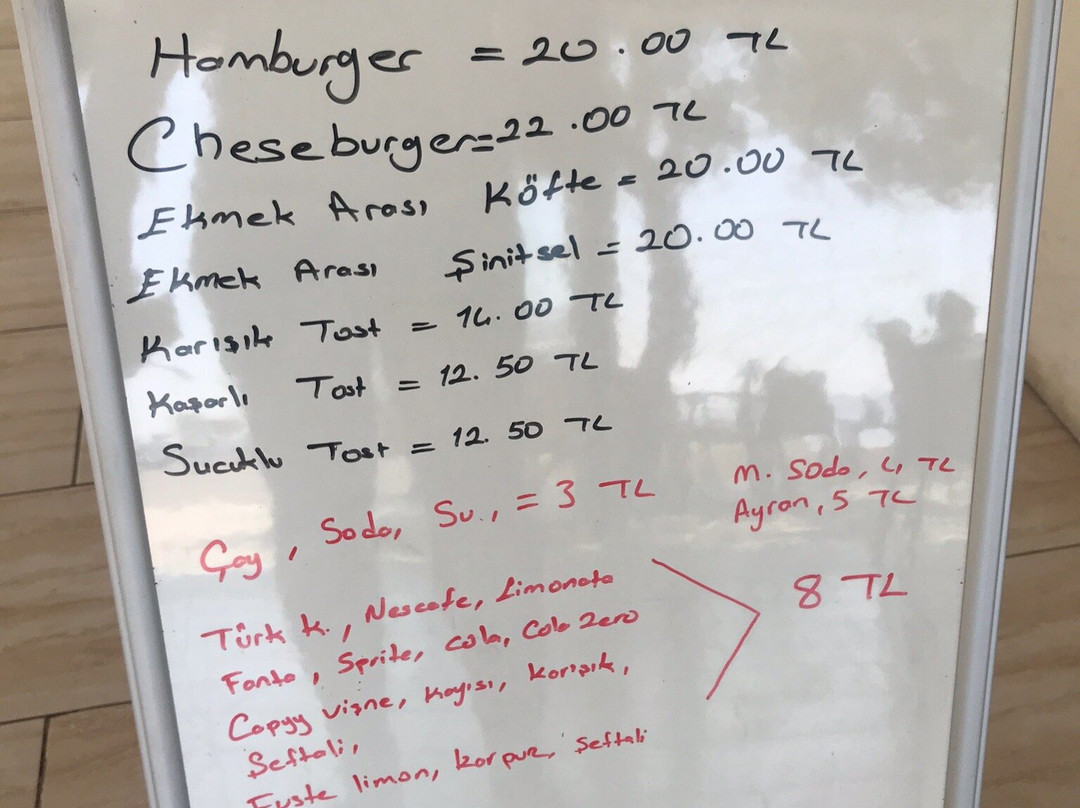 Hamburger = 20.00 TL
Cheseburger=22.00 TL
Ekmek Arası Köfte = 20.00 TL
Ekmek Arası Şinitsel = 20.00 TL
Karışık Tost = 14.00 TL
Kaşarlı Tost = 12.50 TL
Sucuklu Tost = 12.50 TL
Çay, Soda, Su., = 3 TL
M. Soda, 4 TL
Ayran, 5 TL
Türk k., Nescafe, Limonata
Fanta, Sprite, Cola, Cola Zero
Capyy vişne, kayısı, karışık,
Şeftali,
8 TL
Fuste limon, karpuz, Şeftali